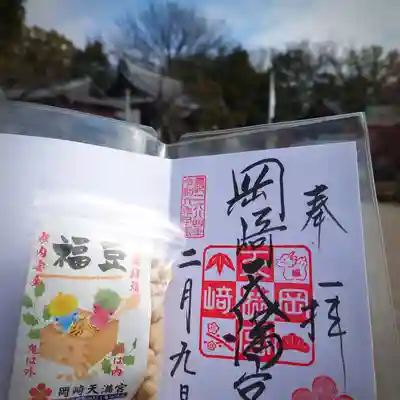 奉拝
岡崎天満宮
二月九日
岡
崎
福豆
家内安全
鬼は外
福は内
岡崎天満宮